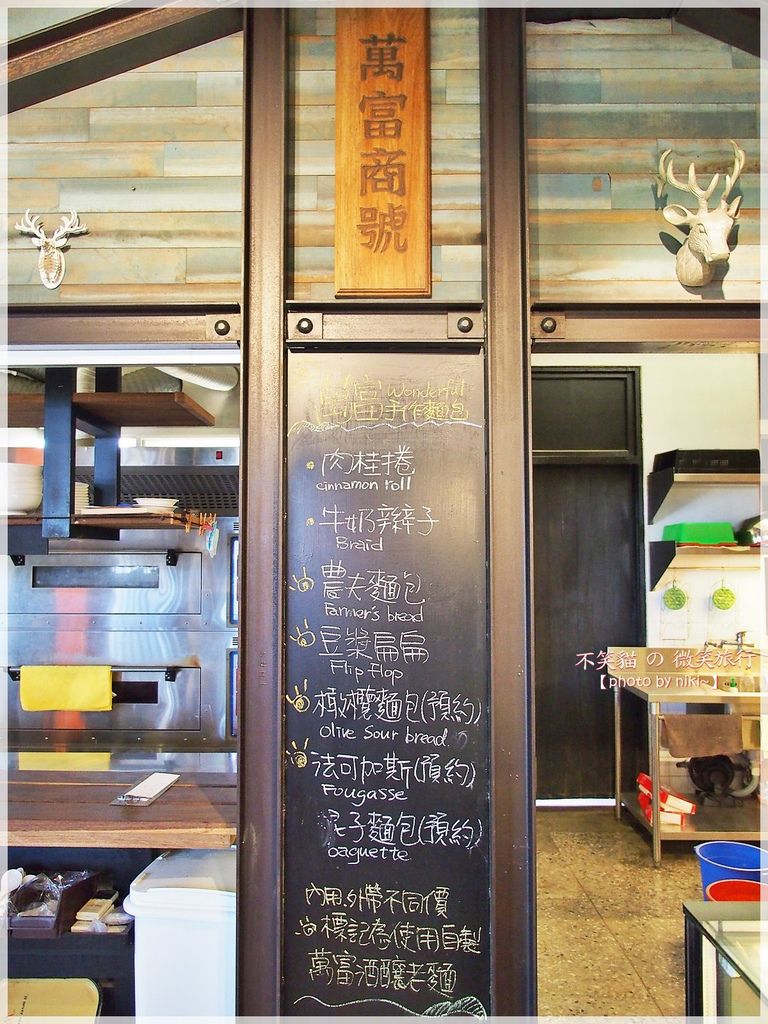 萬富商號
萬富 Wonderful
手作麵包
肉桂捲
cinnamon roll
牛奶辮子
Braid
農夫麵包
Farmer's bread
豆漿扁扁
Flip flop
橄欖麵包(預約)
Olive Sour bread
法可加斯(預約)
Fougasse
子麵包(預約)
baguette
內用.外帶不同價
標記為使用自製
萬富酒釀老麵
不笑貓 の 微笑旅行
【photo by niki~】